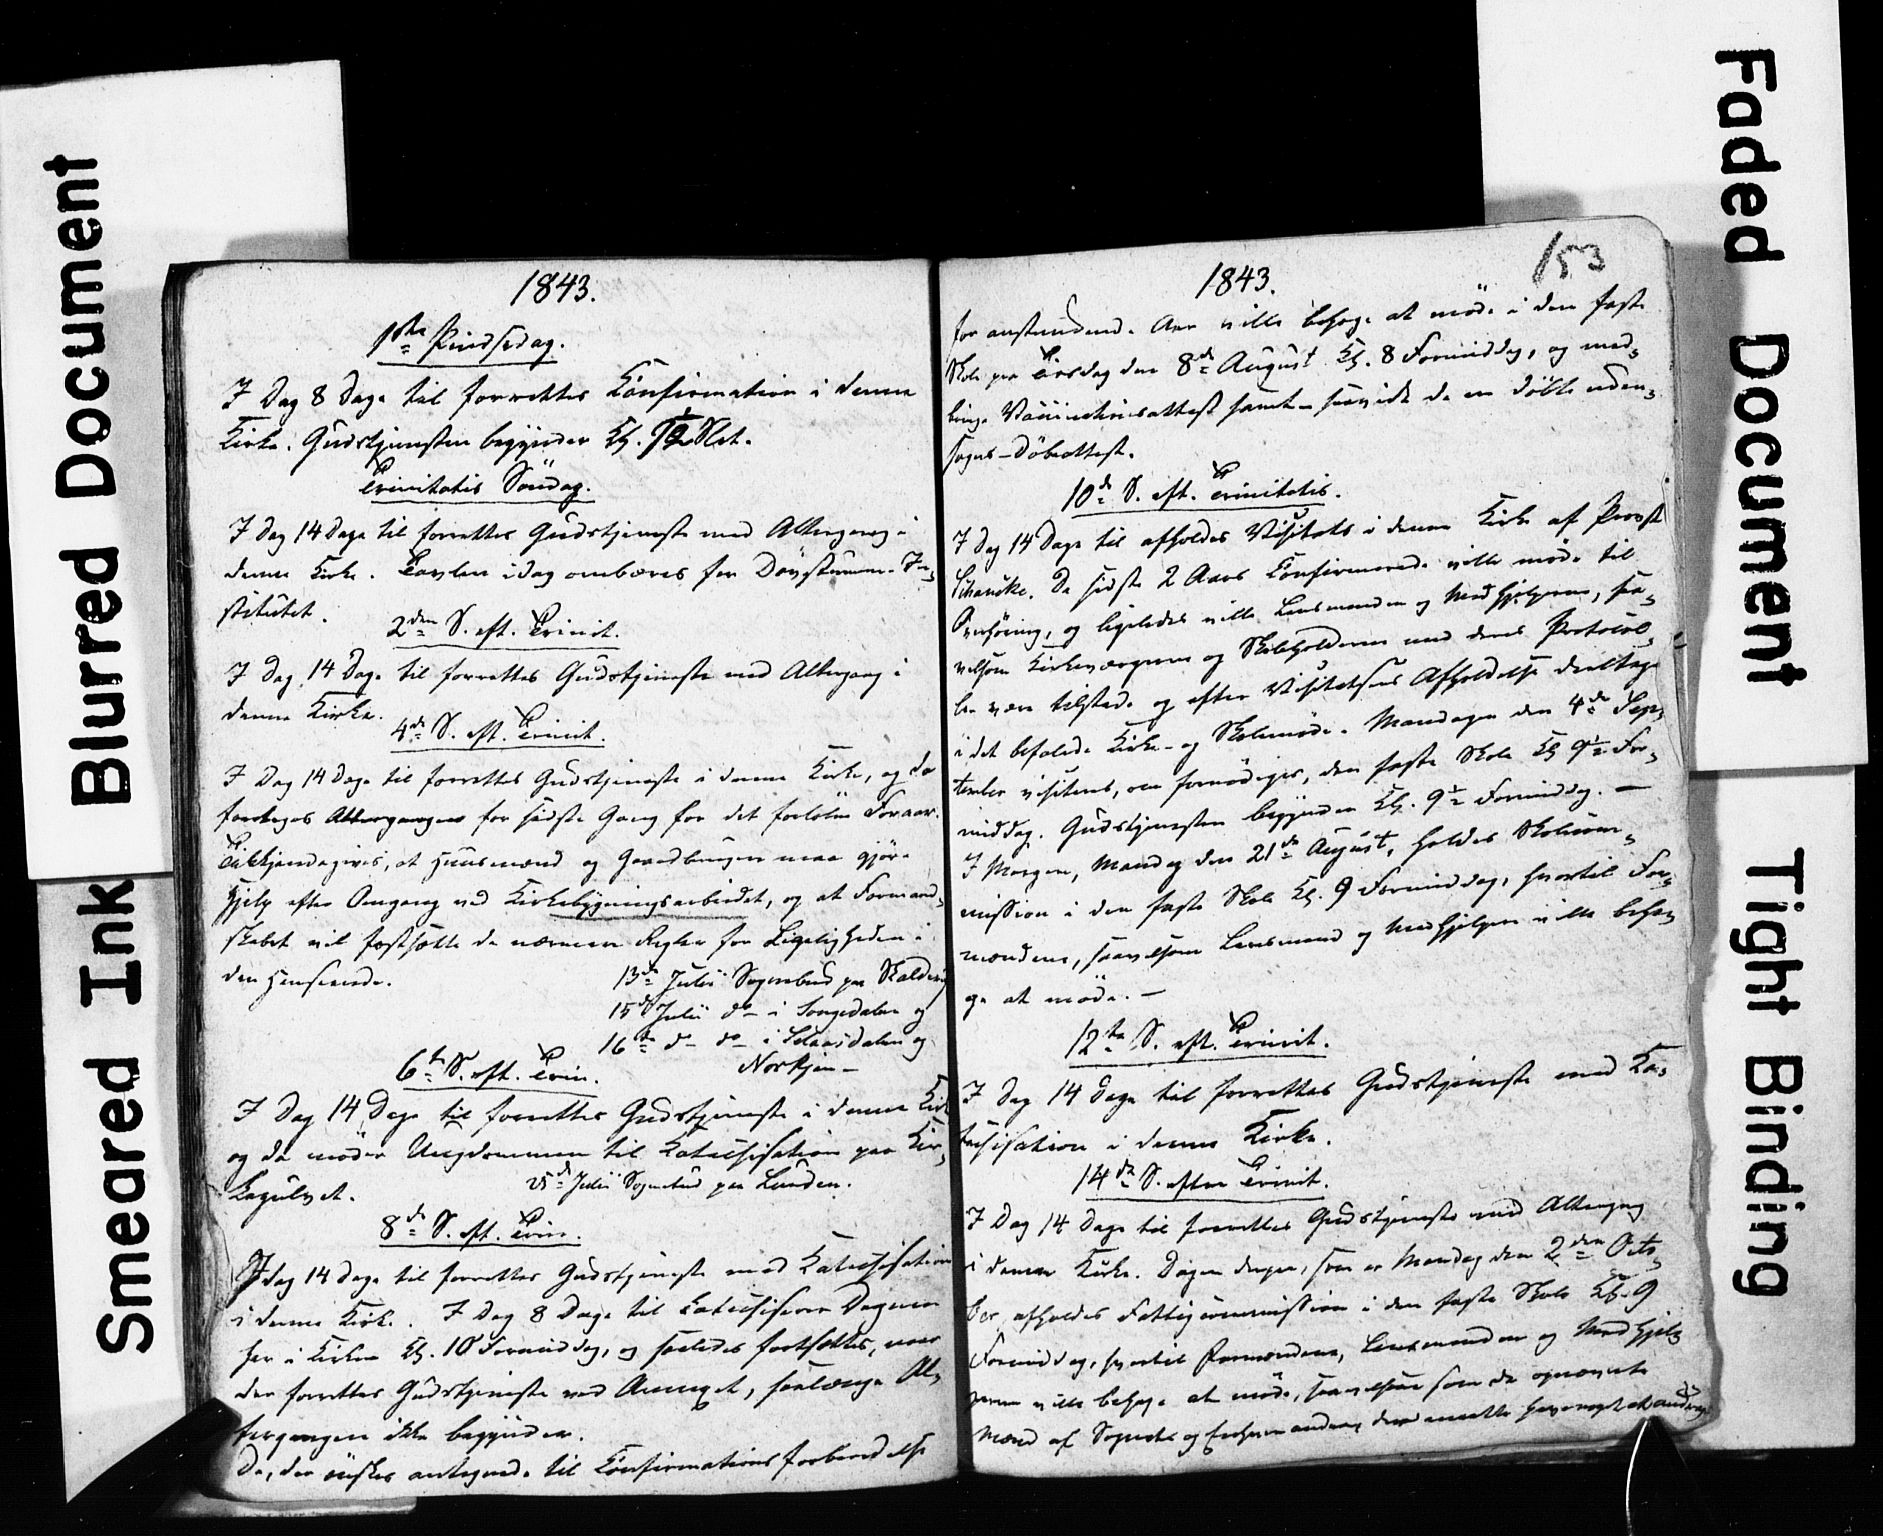 Smeared Ink
Blurred Document
Faded Document
Tight Binding
1843.
1ste Pindsedag.
I Dag 8 Dage til forrettes Confirmation i denne
Kirke. Gudstjenesten begynder Kl. Slet.
Trinitatis Söndag.
I Dag 14 Dage til forrettes Gudstjeneste med Altergang i
denne Kirke. Tavlen idag ombæres for Dövstumme-In-
stitutet.
2den S. eft. Trinit.
I Dag 14 Dage til forrettes Gudstjeneste med Altergang i
denne Kirke.
4de S. eft. Trinit.
I Dag 14 Dage til forrettes Gudstjeneste i denne Kirke, og da
foretages Altergangen for sidste Gang for det forlöbne Foraar.
Tilkjendegives, at Huusmænd og Gaardbruger maa gjöre
Hjelp efter Omgang ved Kirkebygningsarbeidet, og at Formand-
skabet vil fastsætte de nærmere Regler for Ligeligheden i
den Henseende.
13de Julii Sognebud paa
15de Julii do i Songedalen og
16de do do i og
6te S. eft. Trin.
I Dag 14 Dage til forrettes Gudstjeneste i denne Kirke
og da möder Ungdommen til Katechisation paa Kir-
kegulvet.
Julii Sognebud paa Lunden.
8de S. eft. Trin.
Idag 14 Dage til forrettes Gudstjeneste med Katechisation
i denne Kirke. I Dag 8 Dage til Katechiserer Degnen
her i Kirken Kl. 10 Formiddag, og saaledes fortsættes, naar
der forrettes Gudstjeneste ved Annexet, saalænge Al-
tergangen ikke begynder.
De, der önskes antegnede til Confirmationsforberedelse
153
1843.
for anstundende Aar ville behage at möde i den faste
Skole paa Tirsdag den 8de August Kl. 8 Formiddag, og med-
bringe Vaccinationsattest samt - saavidt de ere döbte uden-
sogns - Döbeattest.
10de S. eft. Trinitatis.
I Dag 14 Dage til afholdes Visitats i denne Kirke af Provst
Schancke. De sidste 2 Aars Confirmerede ville möde til
Overhöring, og ligeledes ville Lensmanden og Medhjelperne, saa-
velsom Kirkeværgerne og Skoleholderne med deres Protocol-
ler være tilstede og efter Visitatsens Afholdelse deeltage
i det befalede Kirke- og Skolemöde. Mandagen den 4de Sep-
tember visiteres, om fornödiges, den faste Skole Kl. 9½ For-
middag. Gudstjenesten begynder Kl. 9½ Formiddag. —
I Morgen, Mandag den 21de August, holdes Skolecom-
mission i den faste Skole Kl. 9 Formiddag, hvortil For-
mændene, saavelsom Lensmand og Medhjelpere ville beha-
ge at möde. —
12te S. eft. Trinit.
I Dag 14 Dage til forrettes Gudstjeneste med Ka-
techisation i denne Kirke.
14de S. efter Trinit.
I Dag 14 Dage til forrettes Gudstjeneste med Altergang
i denne Kirke. Dagen derpaa, som er Mandag den 2den Octo-
ber, afholdes Fattigcommission i den faste Skole Kl. 9
Formiddag, hvortil Formændene, Lensmanden og Medhjel-
perne ville behage at möde, saavelsom de opnævnte
Mænd af Sognet og